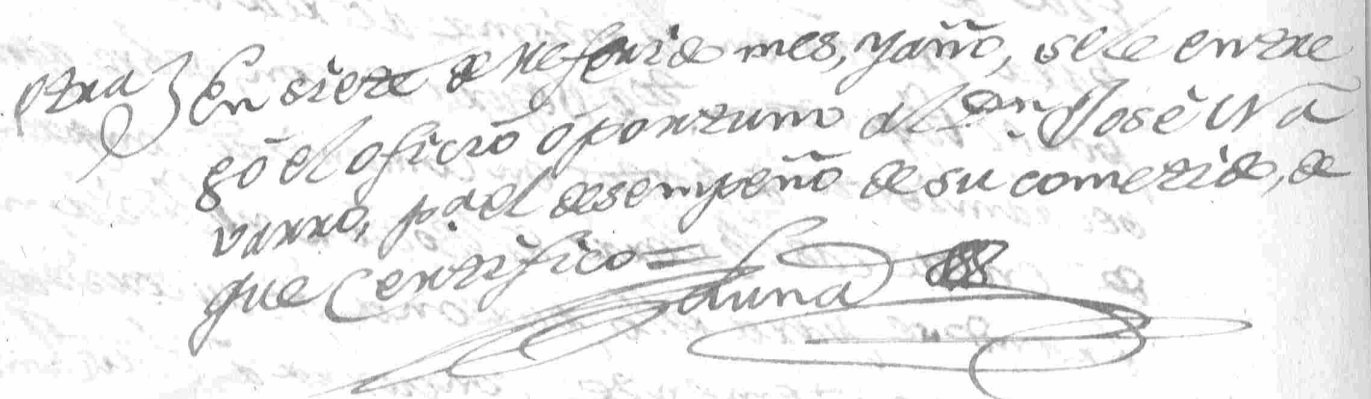 Otra } En siete de referido mes, y año, se le entre
gó el oficio oportuno al Dn. José Na
varro, pa. el desempeño de su cometido, de
que Certifico =
Luna